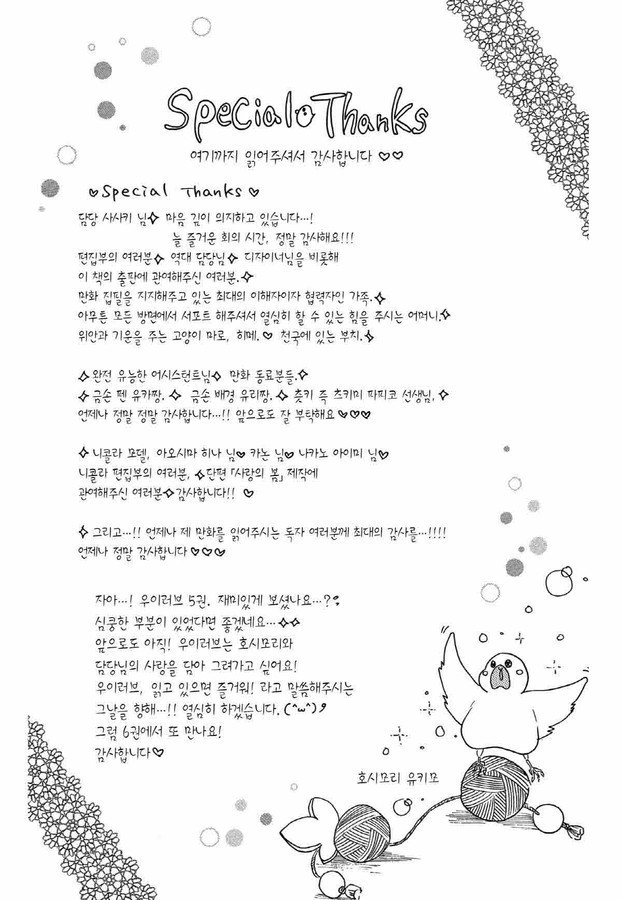 Special Thanks
여기까지 읽어주셔서 감사합니다 ♡♡
♡Special Thanks♡
담당 사사키 님✧ 마음 깊이 의지하고 있습니다…!
늘 즐거운 회의 시간, 정말 감사해요!!!
편집부의 여러분✧ 역대 담당님✧ 디자이너님을 비롯해
이 책의 출판에 관여해주신 여러분.✧
만화 집필을 지지해주고 있는 최대의 이해자이자 협력자인 가족.✧
아무튼 모든 방면에서 서포트 해주셔서 열심히 할 수 있는 힘을 주시는 어머니.✧
위안과 기운을 주는 고양이 마로, 히메.♡ 천국에 있는 부치.✧
✧완전 유능한 어시스턴트님✧ 만화 동료분들.✧
✧금손 펜 유카짱.✧ 금손 배경 유리짱.✧ 츳키 즉 츠키미 파피코 선생님,✧
언제나 정말 정말 감사합니다…!! 앞으로도 잘 부탁해요♡♡♡
✧니콜라 모델, 아오시마 히나 님♡ 카논 님♡ 나카노 아이미 님♡
니콜라 편집부의 여러분, ✧단편「사랑의 봄」제작에
관여해주신 여러분✧감사합니다!! ♡
✧그리고…!! 언제나 제 만화를 읽어주시는 독자 여러분께 최대의 감사를…!!!!
언제나 정말 감사합니다♡♡♡
자아…! 우이러브 5권. 재미있게 보셨나요…?
심쿵한 부분이 있었다면 좋겠네요…✧✧
앞으로도 아직! 우이러브는 호시모리와
담당님의 사랑을 담아 그려가고 싶어요!
우이러브, 읽고 있으면 즐거워! 라고 말씀해주시는
그날을 향해…!! 열심히 하겠습니다.(^ω^)
그럼 6권에서 또 만나요!
감사합니다♡
호시모리 유키모